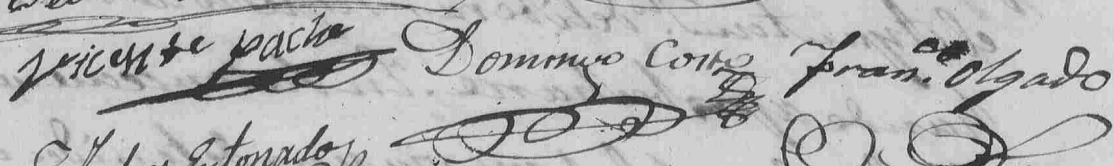 Vicente pacho Domingo Cotto Fran.co Olgado
Entonado